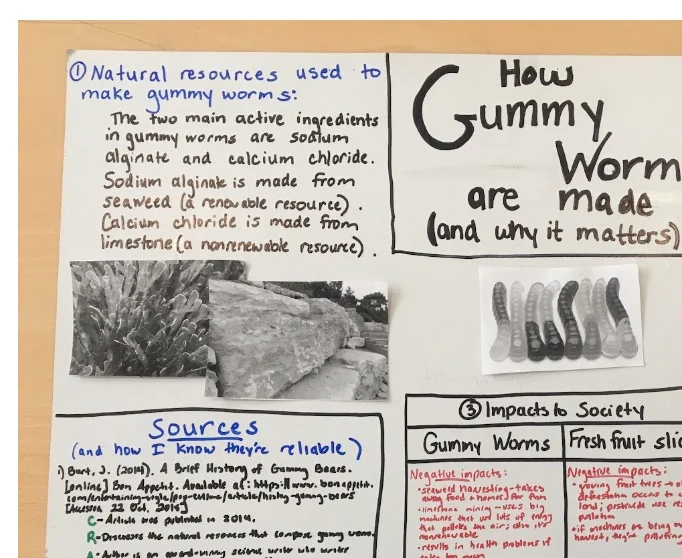 ① Natural resources used to
make gummy worms:
The two main active ingredients
in gummy worms are sodium
alginate and calcium chloride.
Sodium alginate is made from
seaweed (a renewable resource).
Calcium chloride is made from
limestone (a nonrenewable resource).
How
Gummy
Worm
are made
(and why it matters)
Sources
(and how I know they're reliable)
1) Bart, J. (2014). A Brief History of Gummy Bears.
[online] Bon Appetit. Available at: https://www.bonappetit.
com/entertaining-style/pop-culture/article/history-gummy-bears
22 Oct, 2019]
C- Article was published in 2014.
R- Discusses the natural resources that compose gummy worms.
A- Author is an award-winning science writer who writes
③ Impacts to Society
Gummy Worms
Negative impacts:
• seaweed harvesting - takes
away food & homes for fish
• limestone mining - uses big
machines that use lots of energy
that pollutes the air; also it's
nonrenewable.
• results in health problems if
Fresh fruit slic
Negative impacts:
• growing fruit trees →
deforestation occurs to
land; pesticide use
pollution
• if machines are being